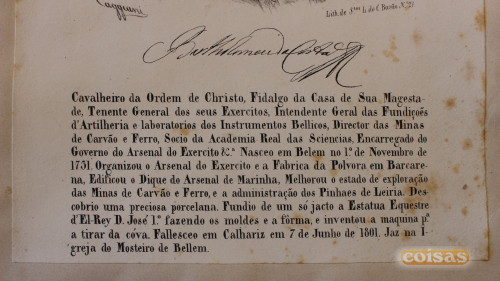 Caggiani
Lith. de
Bartholomeu da Costa
Cavalheiro da Ordem de Christo, Fidalgo da Casa de Sua Magesta-
de, Tenente General dos seus Exercitos, Intendente Geral das Fundições
d'Artilheria e laboratorios dos Instrumentos Bellicos, Director das Minas
de Carvão e Ferro, Socio da Academia Real das Sciencias, Encarregado do
Governo do Arsenal do Exercito &c.ª Nasceo em Belem no 1.º de Novembro de
1731. Organizou o Arsenal do Exercito e a Fabrica da Polvora em Barcare-
na, Edificou o Dique do Arsenal de Marinha, Melhorou o estado de exploração
das Minas de Carvão e Ferro, e a administração dos Pinhaes de Leiria. Des-
cobrio uma preciosa porcelana. Fundio de um só jacto a Estatua Equestre
d'El-Rey D. José 1.º fazendo os moldes e a fôrma, e inventou a maquina p.ª
a tirar da cóva. Fallesceo em Calhariz em 7 de Junho de 1801. Jaz na I-
greja do Mosteiro de Bellem.
coisas